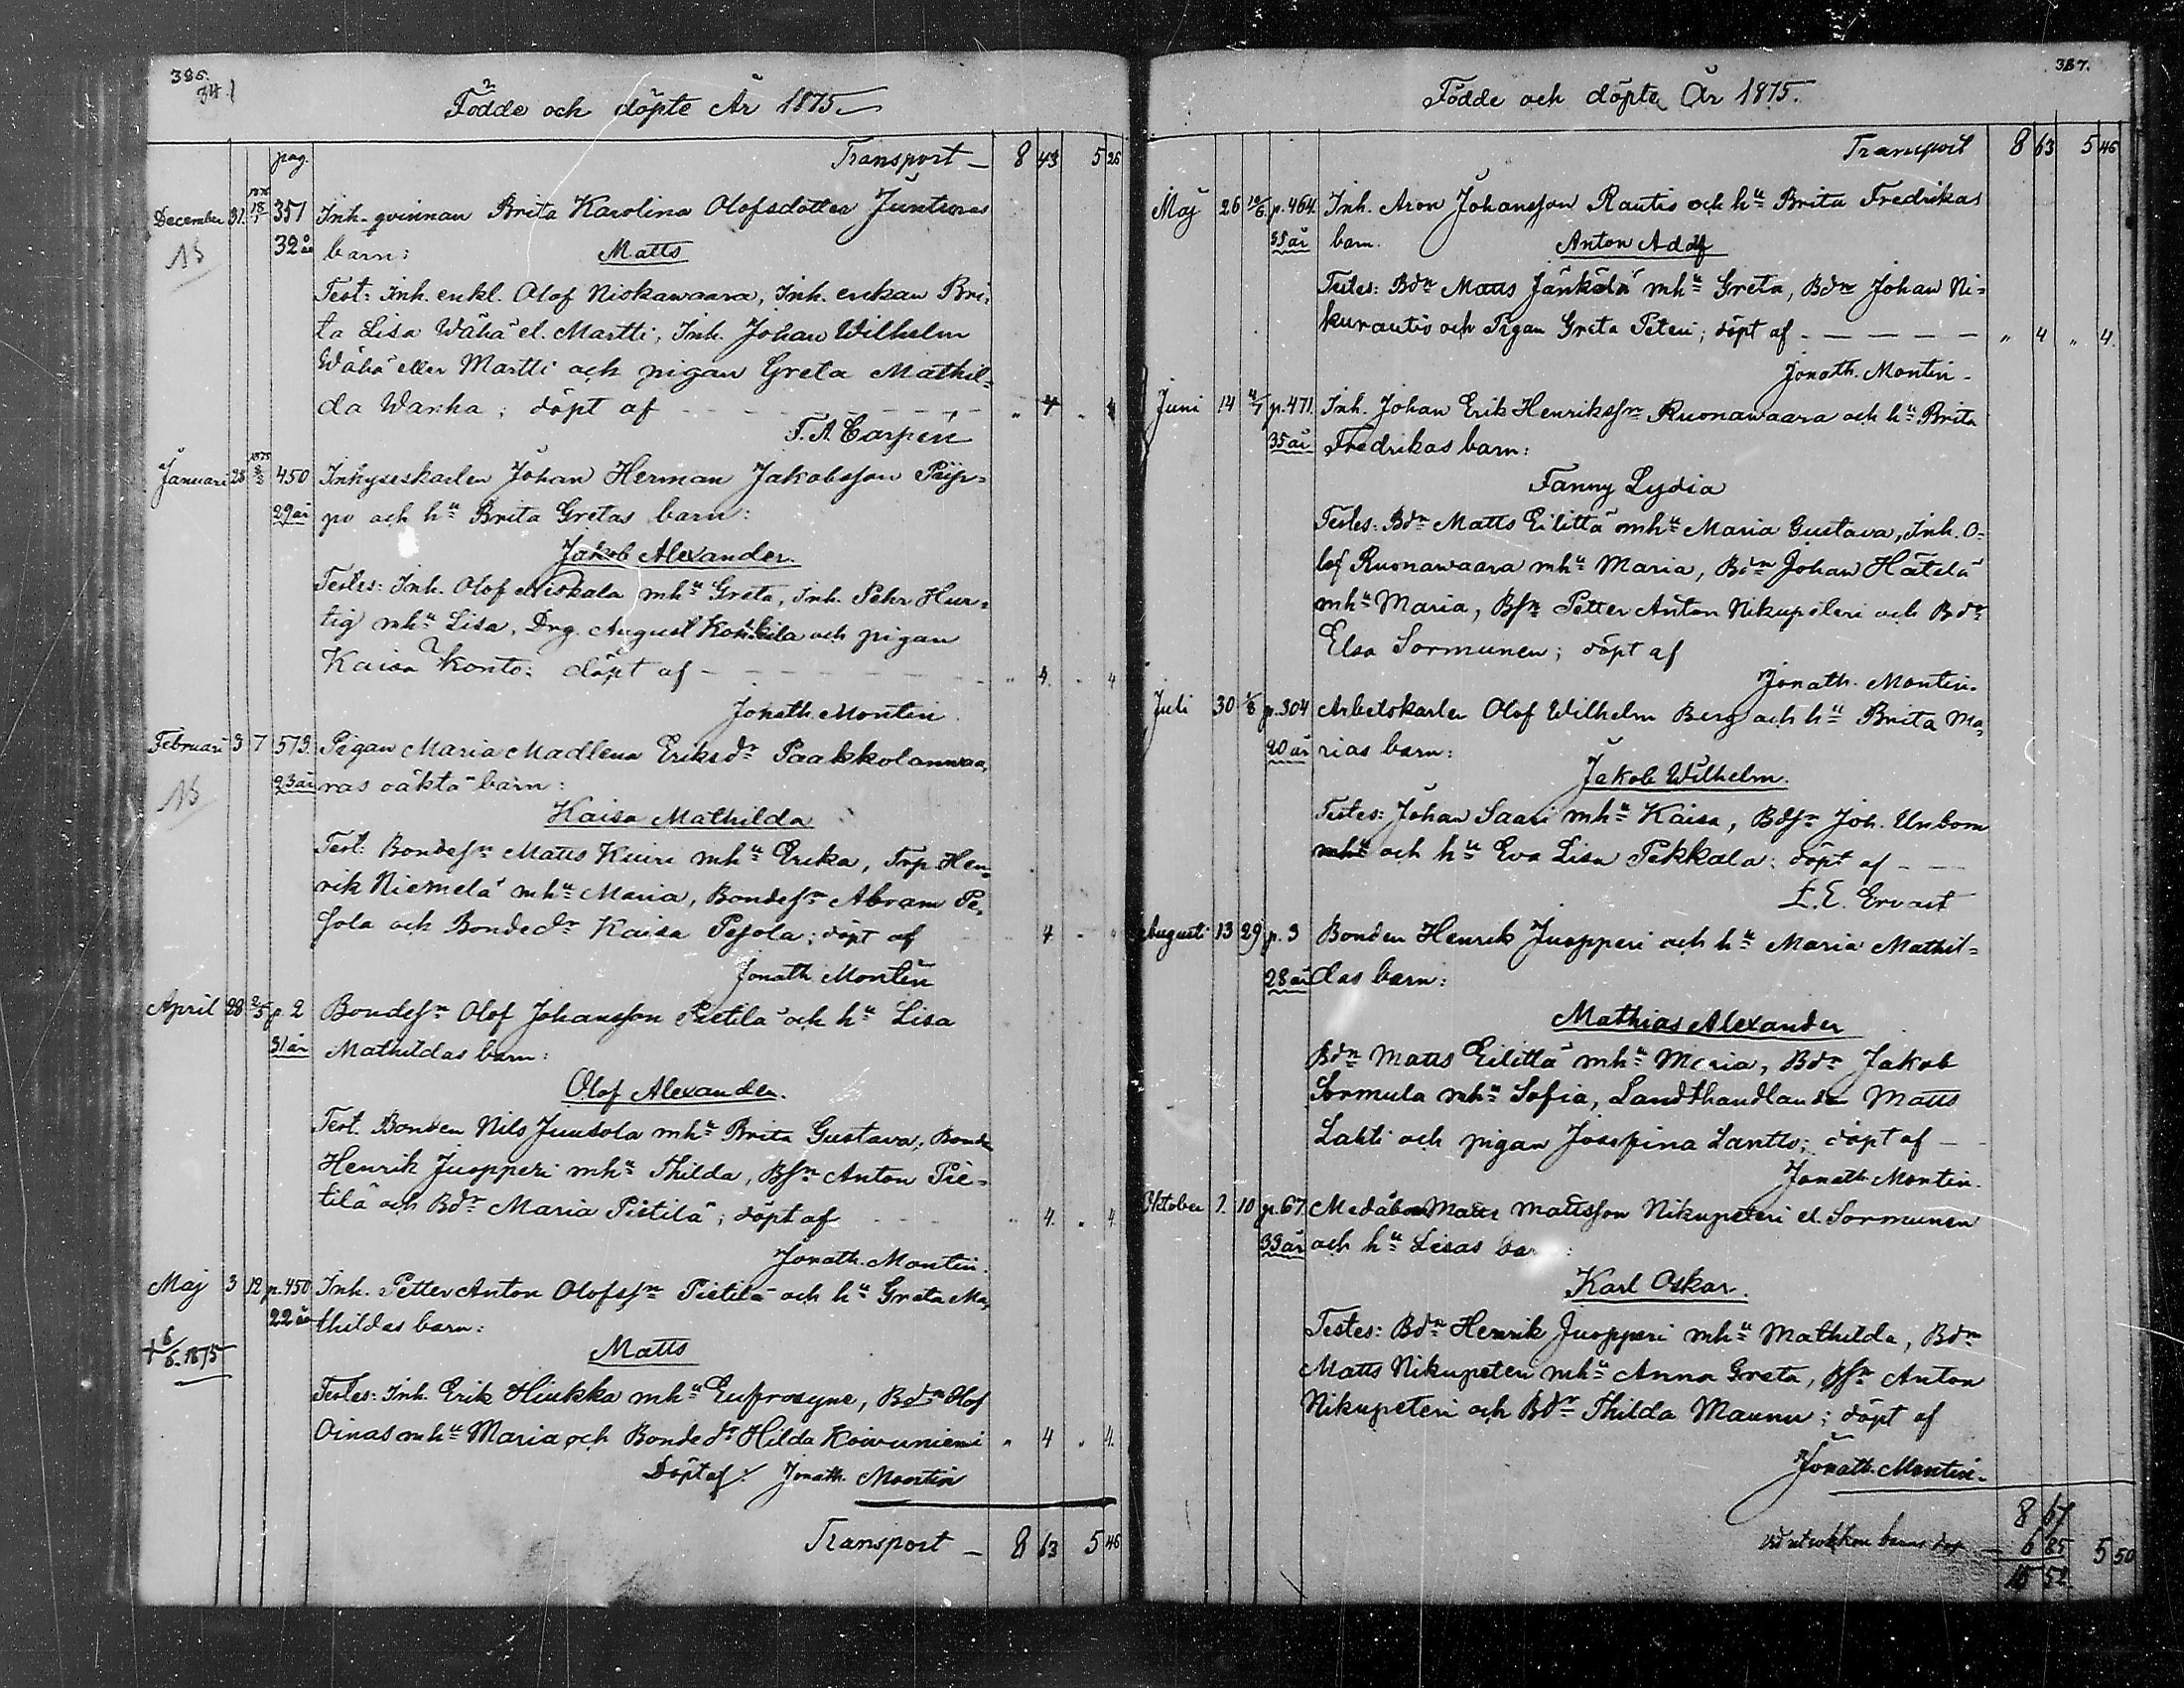 386.
341
Födde och döpte År 1875
pag. Transport — 8 43 5 26
December 31. 1876 18/1 351 Inh. qvinnan Brita Karolina Olofsdotter Juntunas
32 år barn: Matts
Test: Inh. enkl. Olof Niskawaara, Inh. enkan Bri-
ta Lisa Wähä el. Martti, Inh. Johan Wilhelm
Wähä eller Martti och pigan Greta Mathil-
da Wanha; döpt af — — — „ 4 „ 4
F. A. Carpén
Januari 28 1875 450 Inhyseskarlen Johan Herman Jakobsson Piip-
29 år po och hu Brita Gretas barn:
Jakob Alexander.
Testes: Inh. Olof Niskala mhu Greta, Inh. Pehr Hur-
tig mhu Lisa, Drg. August Konkila och pigan
Kaisa Konto: döpt af — — — „ 4. „ 4
Jonath. Montin.
Februari 3 7 573. Pigan Maria Madlena Eriksdr Paakkolanwaa-
23 år ras oäkta barn:
Kaisa Mathilda
Test: Bondesn Matts Kuiri mhu Erika, Trp Hen-
rik Niemelä mhu Maria, Bondesn Abram Pe-
jola och Bondedr Kaisa Pejola; döpt af 4 „
Jonath Montin
April 28 2/5 p. 2 Bondesn Olof Johansson Pietilä och hu Lisa
31 år Mathildas barn:
Olof Alexander.
Test. Bonden Nils Juusola mhu Brita Gustava, Bonden
Henrik Juopperi mhu Thilda, Bsn Anton Pie-
tilä och Bdr Maria Pietilä; döpt af „ 4. „ 4.
Jonath. Montin.
Maj 3 12 p. 450 Inh. Petter Anton Olofssn Pietilä och hu Greta Ma-
22 år thildas barn:
† 6/6. 1875 Matts
Testes: Inh. Erik Hiukka mhu Eufrosyne, Bdn Olof
Oinas mhu Maria och Bondedr Hilda Koivuniemi „ 4 „ 4.
Döpt af: Jonath. Montin
Transport — 8 63 5 46
387.
Födde och döpte År 1875.
Transport 8 63 5 46
Maj 26 10/6 p. 464. Inh. Aron Johansson Rautio och hu Brita Fredrikas
35 år barn. Anton Adolf
Testes: Bdn Matts Jänkälä mhu Greta, Bdn Johan Ni-
kurautio och Pigan Greta Peteri; döpt af — — — „ 4 „ 4.
Jonath. Montin.
Juni 14 4/7 p. 471. Inh. Johan Erik Henrikssn Ruonawaara och hu Brita
35 år Fredrikas barn:
Fanny Lydia
Testes: Bdn Matts Eilittä mhu Maria Gustava, Inh. O-
lof Ruonawaara mhu Maria, Bdn Johan Hätälä
mhu Maria, Bsn Petter Anton Nikupeteri och Bdr
Elsa Sormunen; döpt af
Jonath. Montin.
Juli 30 1/8 p. 304 Arbetskarlen Olof Wilhelm Berg och hu Brita Ma-
20 år rias barn:
Jakob Wilhelm.
Testes: Johan Saari mhu Kaisa, Bdsn Joh. Unbom
mhu och hu Eva Lisa Pekkala: döpt af —
E. E. Ervast
Augusti 13 29 p. 3 Bonden Henrik Juopperi och hu Maria Mathil-
28 år das barn:
Mathias Alexander
Bdn Matts Eilittä mhu Maria, Bdn Jakob
Sormula mhu Sofia, Landthandlanden Matts
Lahti och pigan Josefina Lantto; döpt af —
Jonath. Montin.
Oktober 7. 10 p. 67. Medåboen Matts Mattsson Nikupeteri el. Sormunen
33 år och hu Lisas bar :
Karl Oskar.
Testes: Bdn Henrik Juopperi mhu Mathilda, Bdn
Matts Nikupeteri mhu Anna Greta, Bsn Anton
Nikupeteri och Bdr Thilda Maunu; döpt af
Jonath. Montin.
8 67
barns dop — 6 85 5 50
15 52